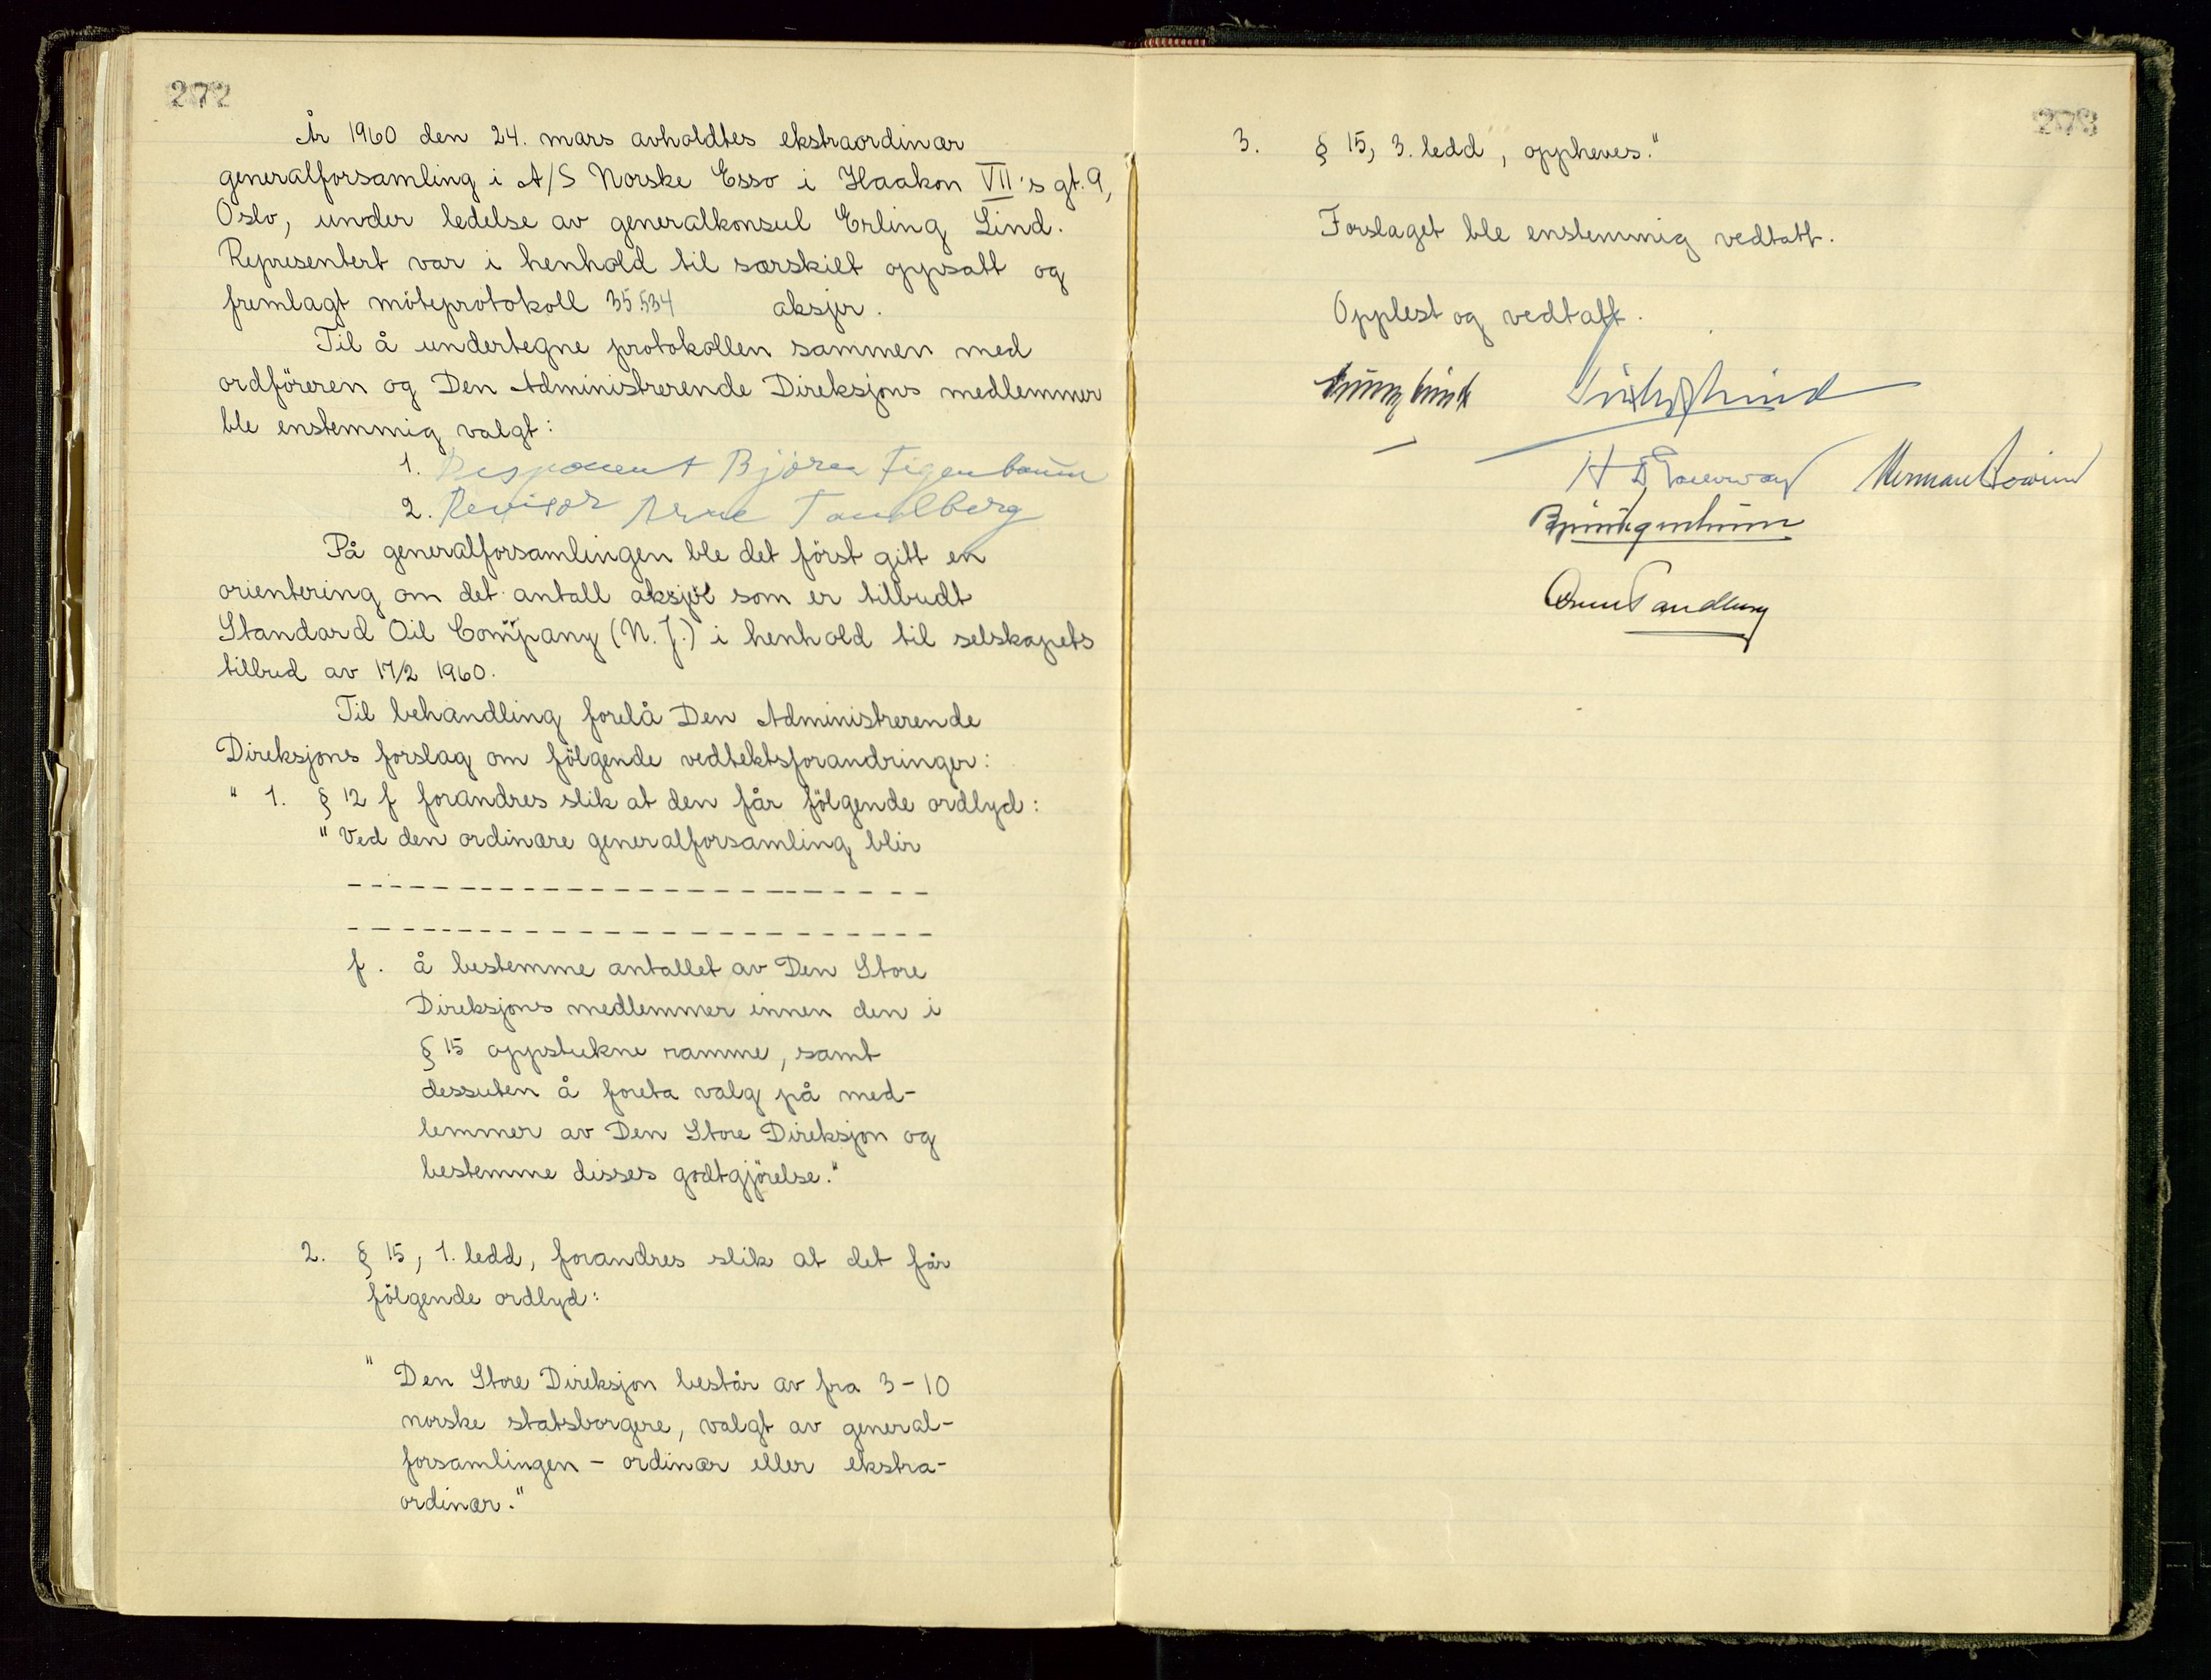 272
År 1960 den 24. mars avholdtes ekstraordinær
generalforsamling i A/S Norske Esso i Haakon VII's gt. 9,
Oslo, under ledelse av generalkonsul Erling Lind.
Representert var i henhold til særskilt oppsatt og
fremlagt möteprotokoll 35.534 aksjer.
Til å undertegne protokollen sammen med
ordföreren og Den Administrerende Direksjons medlemmer
ble enstemmig valgt:
1. Disponent Björn Figenbaum
2. Revisor Arne Tandberg
På generalforsamlingen ble det först gitt en
orientering om det antall aksjer som er tilbudt
Standard Oil Company (N. J.) i henhold til selskapets
tilbud av 17/2 1960.
Til behandling forelå Den Administrerende
Direksjons forslag om fölgende vedtektsforandringer:
" 1. § 12 f forandres slik at den får fölgende ordlyd:
" Ved den ordinære generalforsamling blir
- - - - - - - - - - - - - - - - - - - - - - - -
- - - - - - - - - - - - - - - - - - - - - - - -
f. å bestemme antallet av Den Store
Direksjons medlemmer innen den i
§ 15 oppstukne ramme, samt
dessuten å foreta valg på med-
lemmer av Den Store Direksjon og
bestemme disses godtgjörelse."
2. § 15, 1. ledd, forandres slik at det får
fölgende ordlyd:
" Den Store Direksjon består av fra 3-10
norske statsborgere, valgt av general-
forsamlingen - ordinær eller ekstra-
ordinær."
273
3. § 15, 3. ledd, oppheves."
Forslaget ble enstemmig vedtatt.
Opplest og vedtatt.